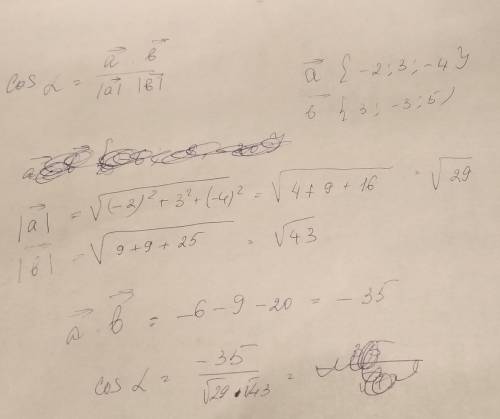 cos α = a⃗ · b⃗ / |a⃗| |b⃗|
a⃗ {-2; 3; -4}
b⃗ {3; -3; 5}
|a⃗| = √((-2)² + 3² + (-4)²) = √(4 + 9 + 16) = √29
|b⃗| = √(9 + 9 + 25) = √43
a⃗ · b⃗ = -6 - 9 - 20 = -35
cos α = -35 / √29 · √43 =